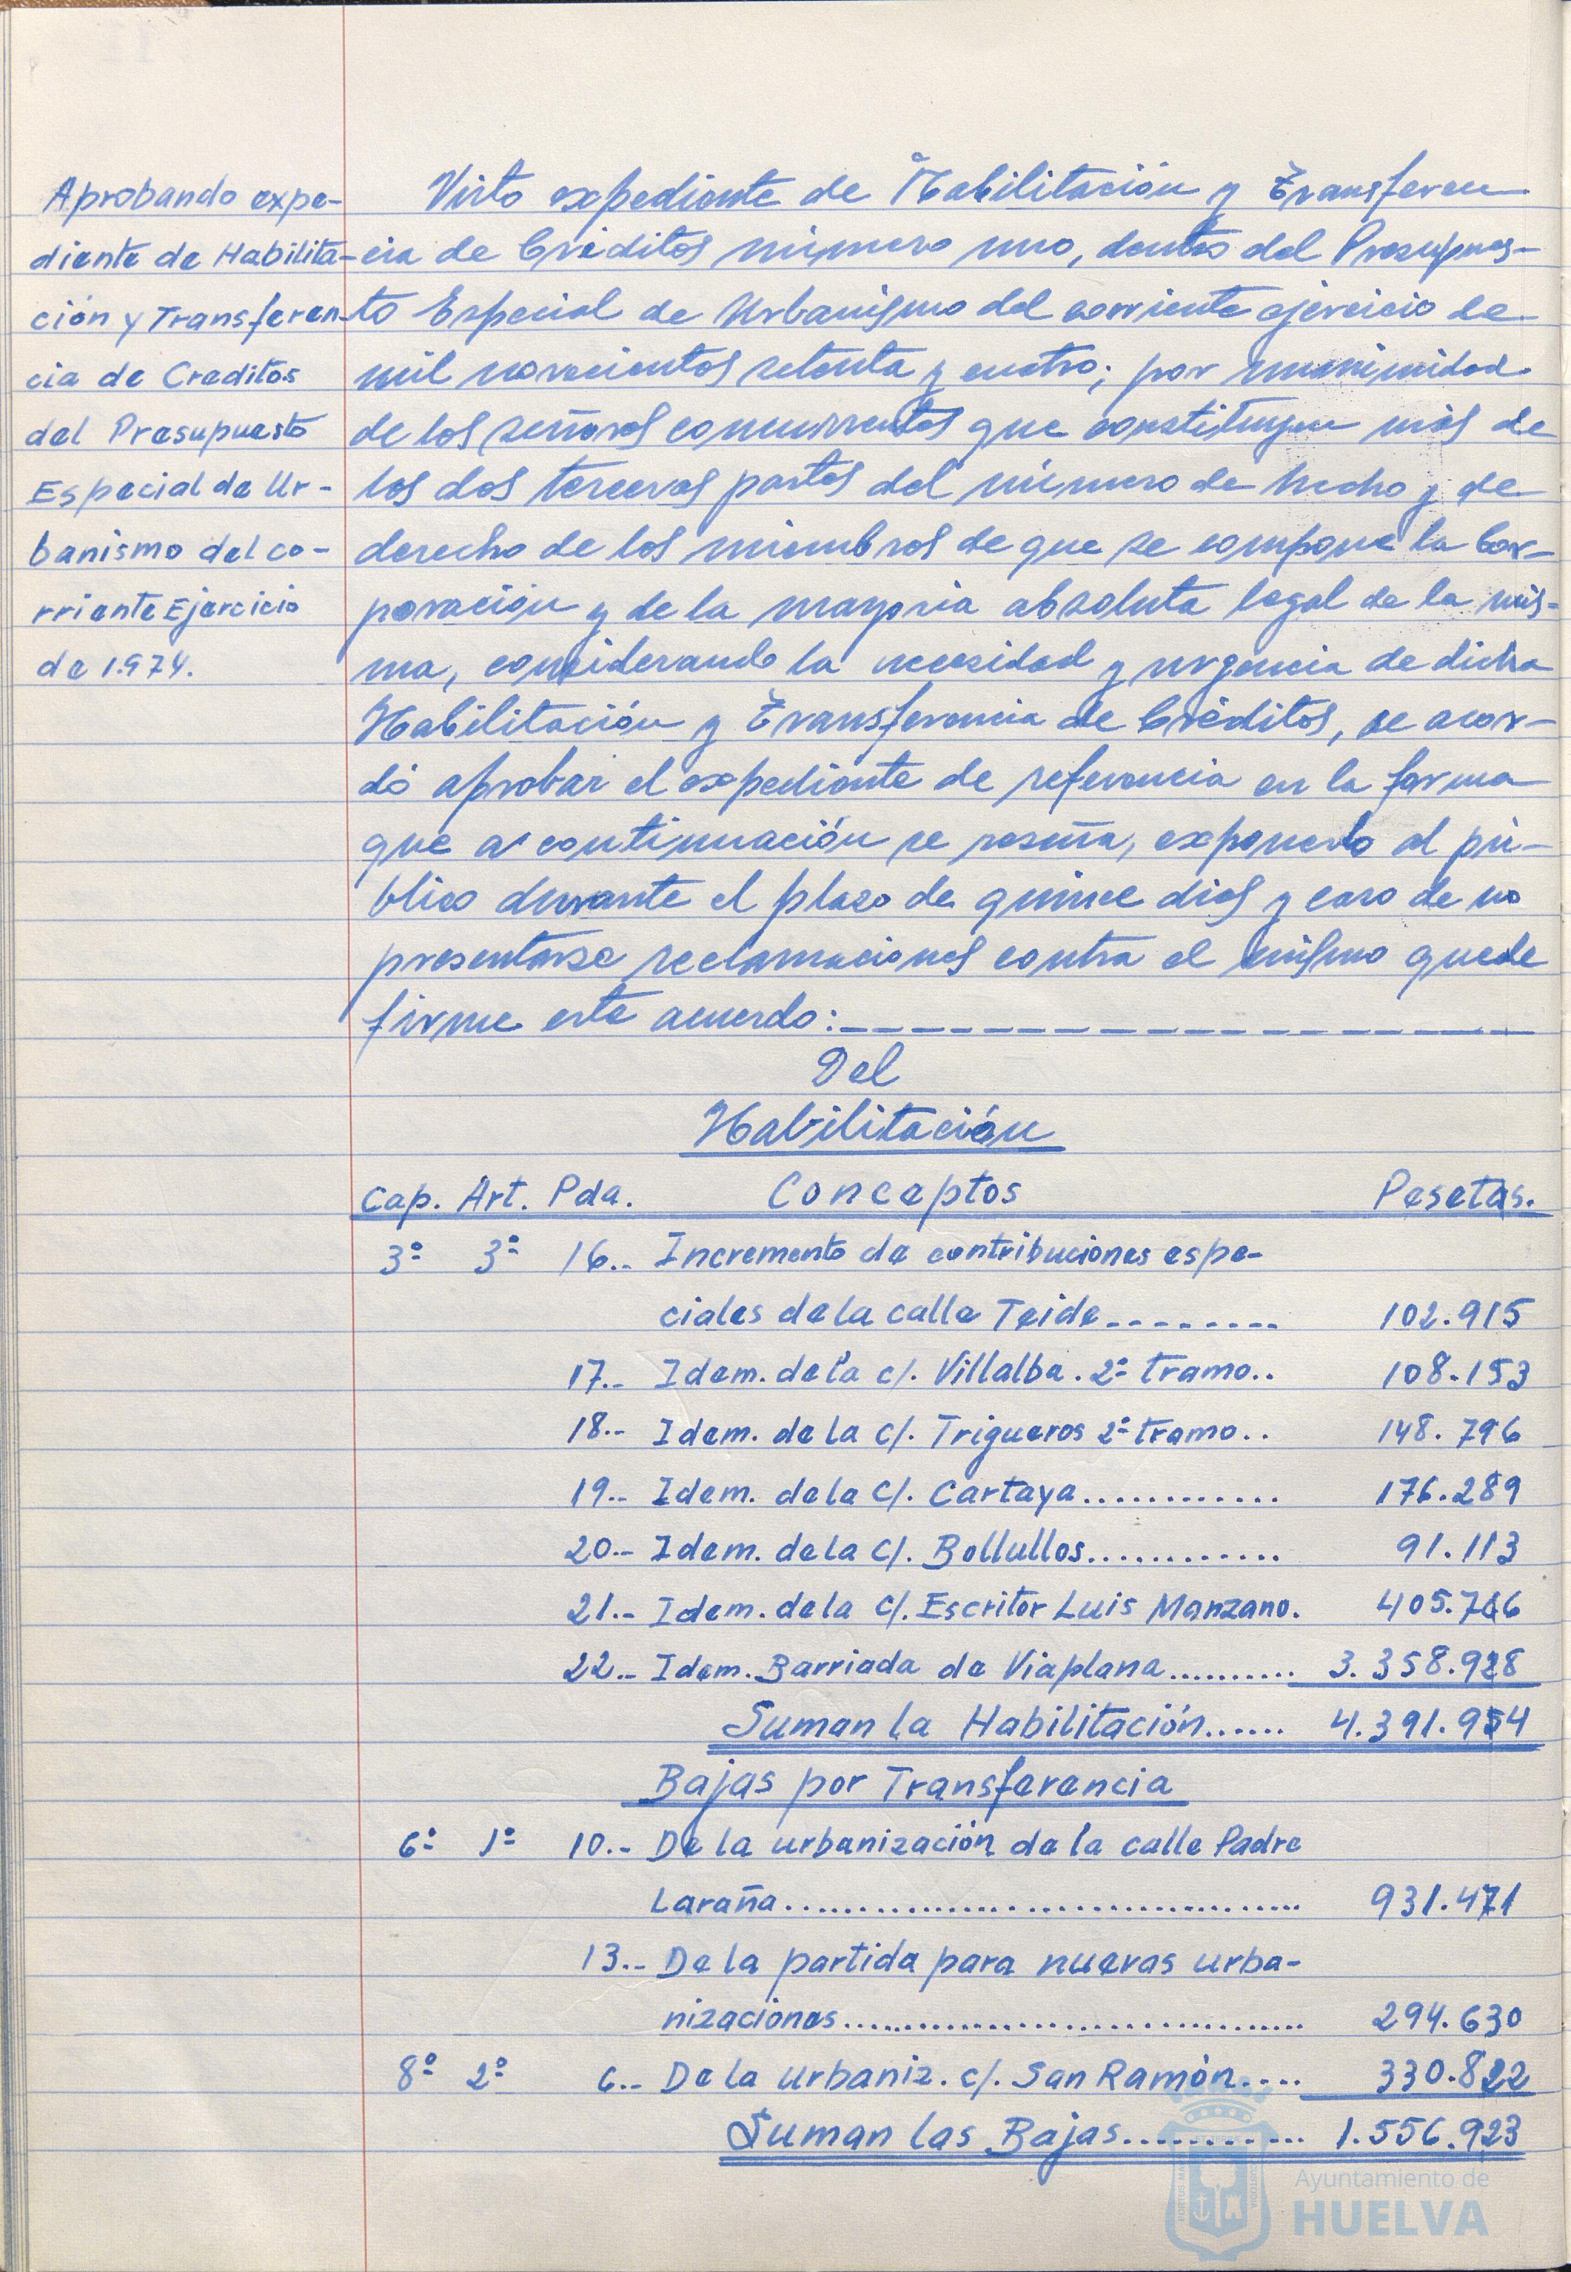 Aprobando expe-
diente de Habilita-
ción y Transferen-
cia de Creditos
del Presupuesto
Especial de Ur-
banismo del co-
rriente Ejercicio
de 1.974.
Visto expediente de Habilitación y Transferen
cia de Créditos número uno, dentro del Presupues-
to Especial de Urbanismo del corriente ejercicio de
mil novecientos setenta y cuatro; por unanimidad
de los señores concurrentes que constituyen más de
las dos terceras partes del número de hecho y de
derecho de los miembros de que se compone la Cor-
poración y de la mayoria absoluta legal de la mis-
ma, considerando la necesidad y urgencia de dicha
Habilitación y Transferencia de Créditos, se acor-
dó aprobar el expediente de referencia en la forma
que a continuación se reseña, exponerlo al pú-
blico durante el plazo de quince dias y caso de no
presentarse reclamaciones contra el mismo quede
firme este acuerdo:
Del
Habilitación
Cap. Art. Pda. Conceptos Pesetas.
3º 3º 16.- Incremento de contribuciones espe-
ciales de la calle Teide........ 102.915
17.- Idem. de la c/. Villalba. 2º tramo.. 108.153
18.- Idem. de la c/. Trigueros 2º tramo.. 148.796
19.- Idem. de la c/. Cartaya............ 176.289
20.- Idem. de la c/. Bollullos............ 91.113
21.- Idem. de la c/. Escritor Luis Manzano. 405.766
22.- Idem. Barriada de Viaplana.......... 3.358.928
Suman la Habilitación...... 4.391.954
Bajas por Transferencia
6º 1º 10.- De la urbanización de la calle Padre
Laraña.................................... 931.471
13.- De la partida para nuevas urba-
nizaciones................................ 294.630
8º 2º 6.- De la urbaniz. c/. San Ramón.... 330.822
Suman las Bajas............ 1.556.923
Ayuntamiento de
HUELVA